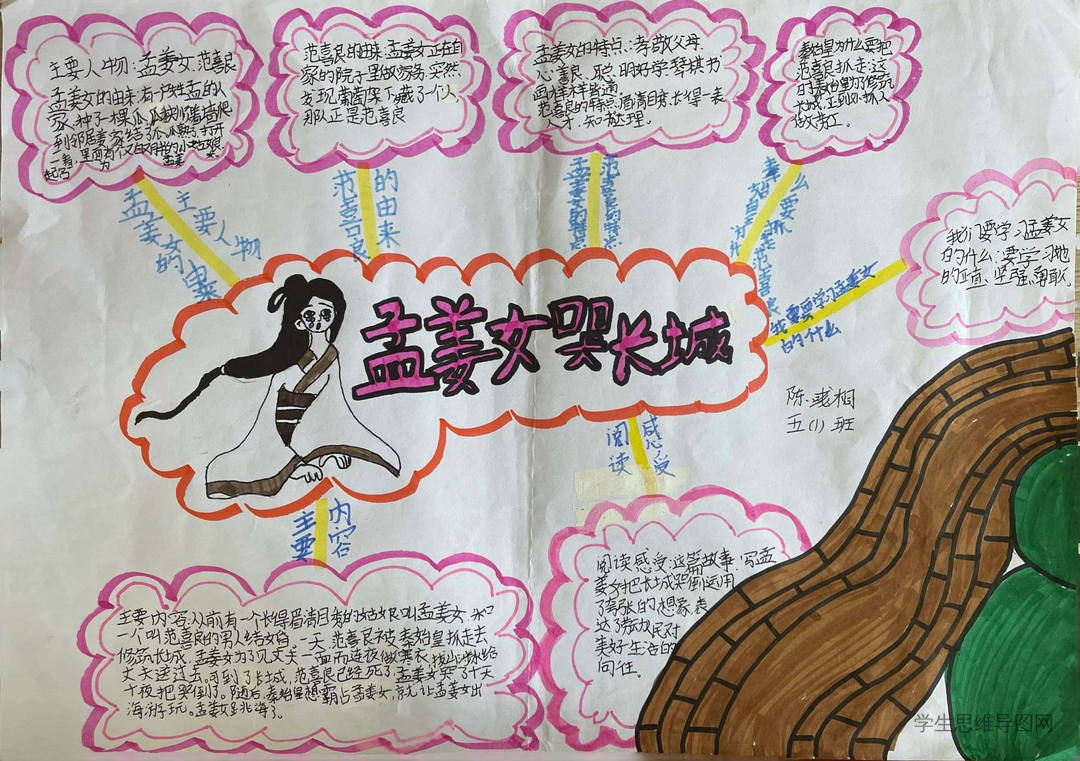 主要人物：孟姜女、范喜良
孟姜女的由来：有一户姓孟的人
家，种了一棵瓜，瓜秧顺着墙爬
到邻居姜家结了瓜。瓜熟了，打开
一看，里面有个又白又胖的小姑娘，
起名为孟姜女
范喜良的由来：孟姜女正在自
家的院子里做家务，突然，
发现葡萄架下藏了个人，
那人正是范喜良
孟姜女的特点：孝敬父母、
心善良、聪明好学、琴棋书
画样样皆通
范喜良的特点：眉清目秀、长得一表
人才，知书达理。
秦始皇为什么要把
范喜良抓走：这
时秦始皇为了修筑
长城，正到处抓人
做劳工。
我们要学习孟姜女
的什么：要学习她
的正直、坚强、勇敢。
主要人物
孟姜女的由来
范喜良的由来
孟姜女的特点
范喜良的特点
秦始皇为什么要抓走范喜良
我们要学习孟姜女
的什么
孟姜女哭长城
陈彧桐
五（1）班
阅读感受
主要内容
主要内容：从前有一个长得眉清目秀的姑娘叫孟姜女，和
一个叫范喜良的男人结婚。一天，范喜良被秦始皇抓走去
修筑长城，孟姜女为了见丈夫一面而连夜做寒衣，拔山涉水给
丈夫送过去。可到了长城，范喜良已经死了，孟姜女哭了十天
十夜把哭倒了。随后，秦始皇想霸占孟姜女，就让孟姜女出
海游玩。孟姜女跳海了。
阅读感受：这篇故事，写孟
姜女把长城哭倒运用
了夸张的想象，表
达了劳动人民对
美好生活的
向往。
学生思维导图网